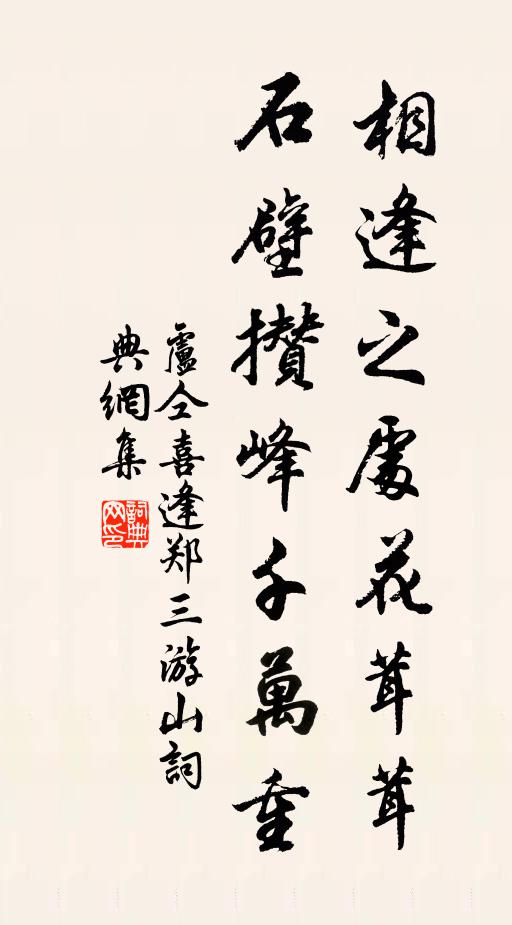 相逢之處花茸茸
石壁攢峰千萬重
盧仝喜逢郑三游山詞
典網集
詞典网印